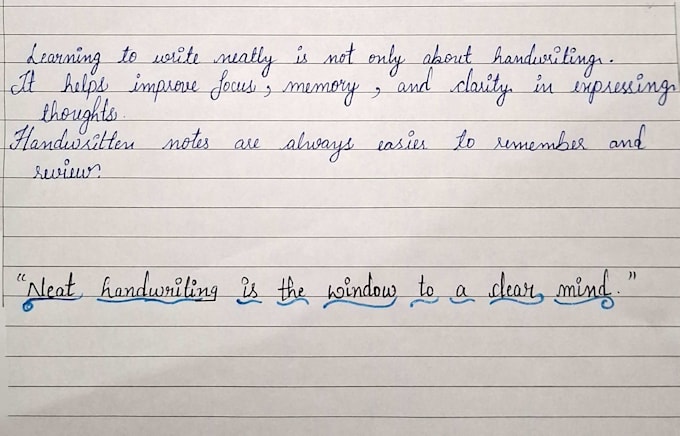 Learning to write neatly is not only about handwriting.
It helps improve focus, memory, and clarity in expressing
thoughts.
Handwritten notes are always easier to remember and
review.
"Neat handwriting is the window to a clear mind."